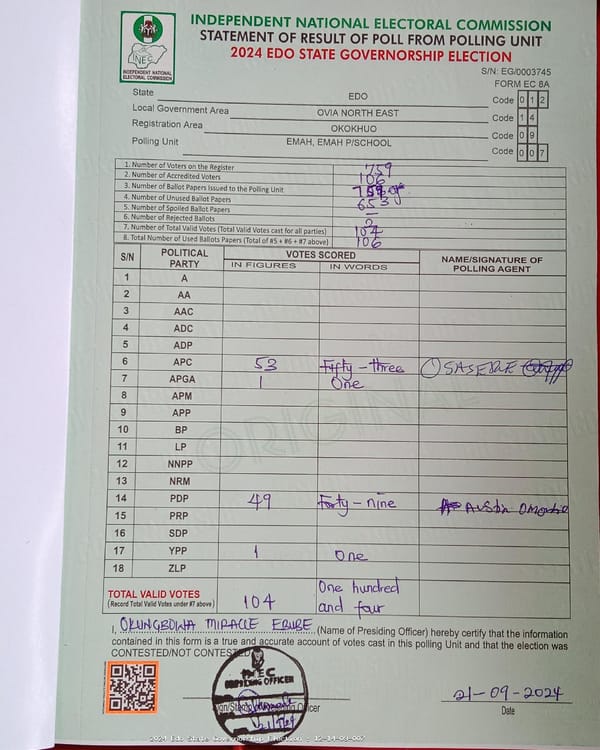 INEC
INDEPENDENT NATIONAL
ELECTORAL COMMISSION
INDEPENDENT NATIONAL ELECTORAL COMMISSION
STATEMENT OF RESULT OF POLL FROM POLLING UNIT
2024 EDO STATE GOVERNORSHIP ELECTION
S/N: EG/0003745
FORM EC 8A
State EDO Code 0 1 2
Local Government Area OVIA NORTH EAST Code 1 4
Registration Area OKOKHUO Code 0 9
Polling Unit EMAH, EMAH P/SCHOOL Code 0 0 7
1. Number of Voters on the Register 759
2. Number of Accredited Voters 106
3. Number of Ballot Papers Issued to the Polling Unit
4. Number of Unused Ballot Papers 653
5. Number of Spoiled Ballot Papers –
6. Number of Rejected Ballots 2
7. Number of Total Valid Votes (Total Valid Votes cast for all parties) 104
8. Total Number of Used Ballots Papers (Total of #5 + #6 + #7 above) 106
S/N POLITICAL PARTY VOTES SCORED NAME/SIGNATURE OF POLLING AGENT
IN FIGURES IN WORDS
1 A
2 AA
3 AAC
4 ADC
5 ADP
6 APC 53 Fifty-three OSASERE
7 APGA 1 One
8 APM
9 APP
10 BP
11 LP
12 NNPP
13 NRM
14 PDP 49 Forty-nine Austin
15 PRP
16 SDP
17 YPP 1 One
18 ZLP
ORIGINAL
TOTAL VALID VOTES 104 One hundred
(Record Total Valid Votes under #7 above) and four
I, OKUNGBOWA MIRACLE EBUBE (Name of Presiding Officer) hereby certify that the information
contained in this form is a true and accurate account of votes cast in this polling Unit and that the election was
CONTESTED/NOT CONTESTED
INEC
PRESIDING OFFICER
21-09-2024
Date
2024 Edo State Governorship Election - 12-14-09-007